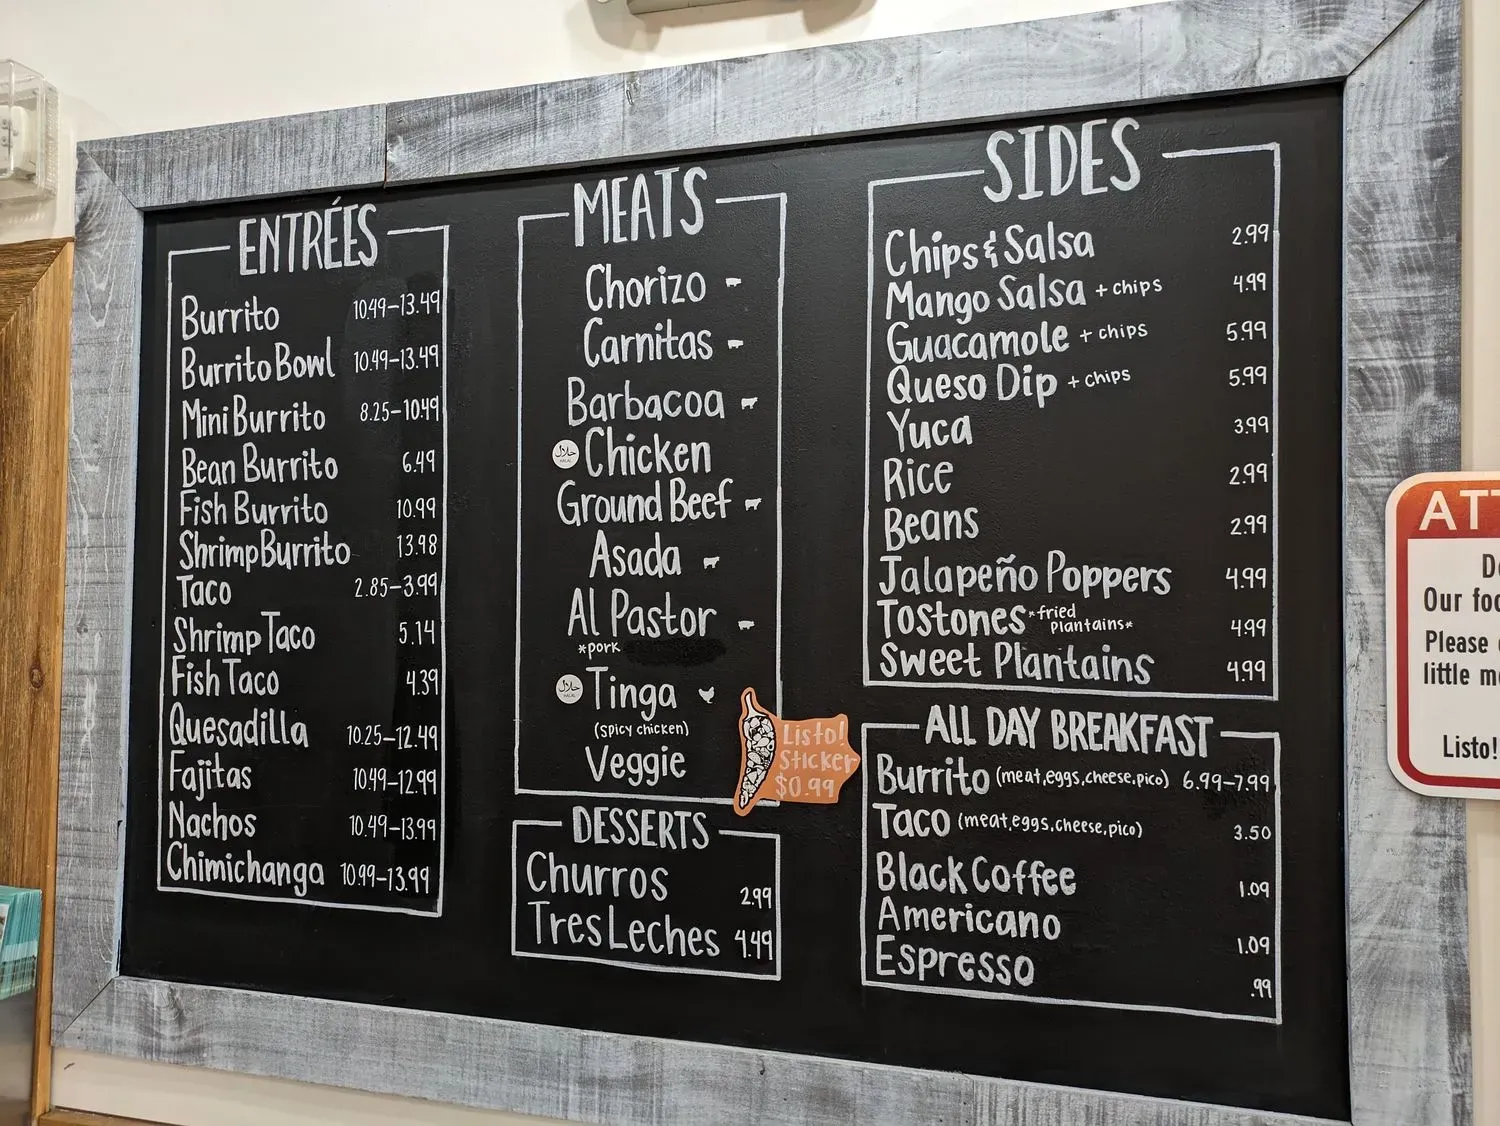 ENTRÉES
Burrito 10.49-13.49
Burrito Bowl 10.49-13.49
Mini Burrito 8.25-10.49
Bean Burrito 6.49
Fish Burrito 10.99
Shrimp Burrito 13.98
Taco 2.85-3.99
Shrimp Taco 5.14
Fish Taco 4.39
Quesadilla 10.25-12.49
Fajitas 10.49-12.99
Nachos 10.49-13.99
Chimichanga 10.99-13.99
MEATS
Chorizo
Carnitas
Barbacoa
حلال HALAL Chicken
Ground Beef
Asada
Al Pastor
*pork
حلال HALAL Tinga
(spicy chicken)
Veggie
Listo!
Sticker
$0.99
DESSERTS
Churros 2.99
Tres Leches 4.49
SIDES
Chips & Salsa 2.99
Mango Salsa + chips 4.99
Guacamole + chips 5.99
Queso Dip + chips 5.99
Yuca 3.99
Rice 2.99
Beans 2.99
Jalapeño Poppers 4.99
Tostones *fried plantains* 4.99
Sweet Plantains 4.99
ALL DAY BREAKFAST
Burrito (meat,eggs,cheese,pico) 6.99-7.99
Taco (meat,eggs,cheese,pico) 3.50
Black Coffee 1.09
Americano 1.09
Espresso .99
ATT
Our foo
Please
little m
Listo!